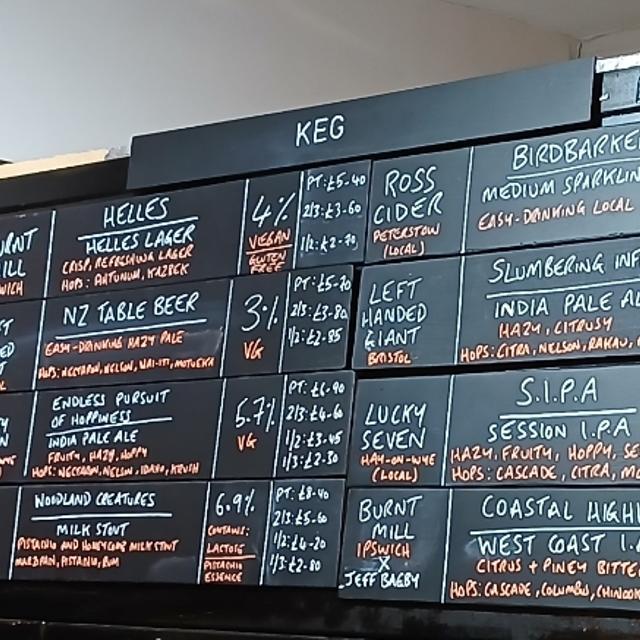 KEG
HELLES
HELLES LAGER
CRISP, REFRESHING LAGER
HOPS: AKTUNUM, KAZBEK
4%
VEGAN
GLUTEN FREE
PT: £5-40
2/3: £3-60
1/2: £2-70
NZ TABLE BEER
EASY-DRINKING HAZY PALE
HOPS: NECTARON, NELSON, WAI-ITI, MOTUEKA
3%
VG
PT: £5-70
2/3: £3-80
1/2: £2-85
ENDLESS PURSUIT
OF HOPPINESS
INDIA PALE ALE
FRUITY, HAZY, HOPPY
HOPS: NECTARON, NELSON, IDAHO, KRUSH
5.7%
VG
PT: £6-90
2/3: £4-60
1/2: £3-45
1/3: £2-30
WOODLAND CREATURES
MILK STOUT
PISTACHIO AND HONEYCOMB MILK STOUT
MARZIPAN, PISTACHIO, RUM
6.9%
CONTAINS:
LACTOSE
PISTACHIO
ESSENCE
PT: £8-40
2/3: £5-60
1/2: £4-20
1/3: £2-80
ROSS
CIDER
PETERSTOW
(LOCAL)
BIRDBARKE
MEDIUM SPARKLIN
EASY-DRINKING LOCAL
LEFT
HANDED
GIANT
BRISTOL
SLUMBERING INF
INDIA PALE AL
HAZY, CITRUSY
HOPS: CITRA, NELSON, RAKAU,
LUCKY
SEVEN
HAY-ON-WYE
(LOCAL)
S.I.P.A
SESSION I.P.A
HAZY, FRUITY, HOPPY, SE
HOPS: CASCADE, CITRA, MO
BURNT
MILL
IPSWICH
X
JEFF BAGBY
COASTAL HIGH
WEST COAST I.
CITRUS + PINEY BITTE
HOPS: CASCADE, COLUMBUS, CHINOOK